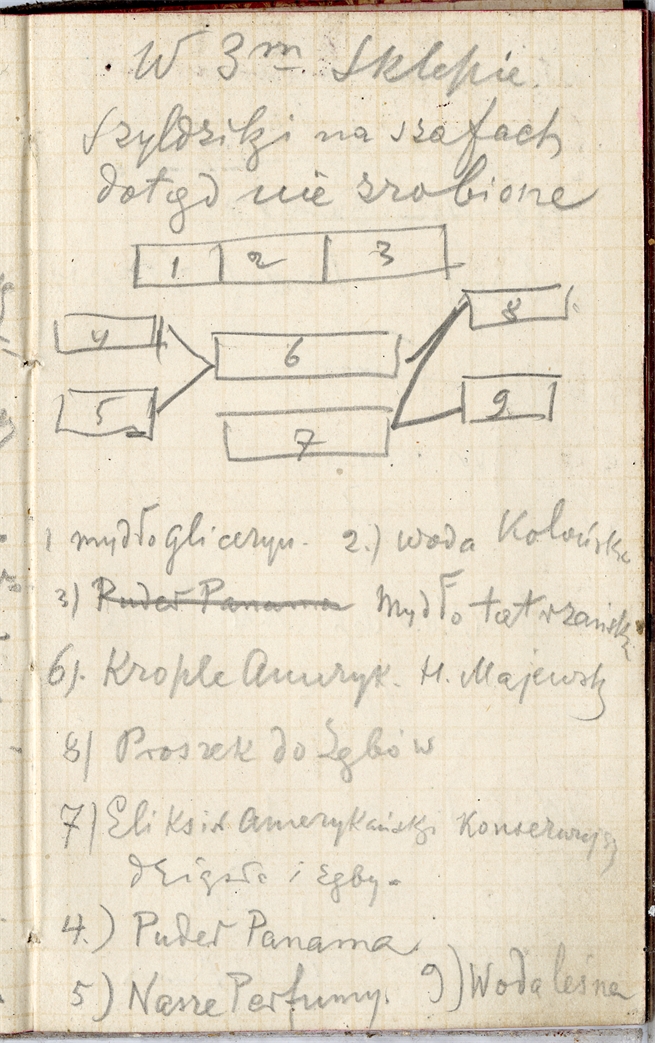 W 3m Sklepie
Szyldziki na szafach
dotąd nie zrobione
1 2 3
4 6 8
5 7 9
1 mydło gliceryn. 2.) woda Kolońska
3) Puder Panama Mydło tatrzańskie
6). Krople Ameryk. H. Majewsk
8) Proszek do Zębów
7) Eliksir Amerykański Konserwując
dziąsła i zęby.
4.) Puder Panama.
5) Nasze Perfumy. 9) Woda leśna